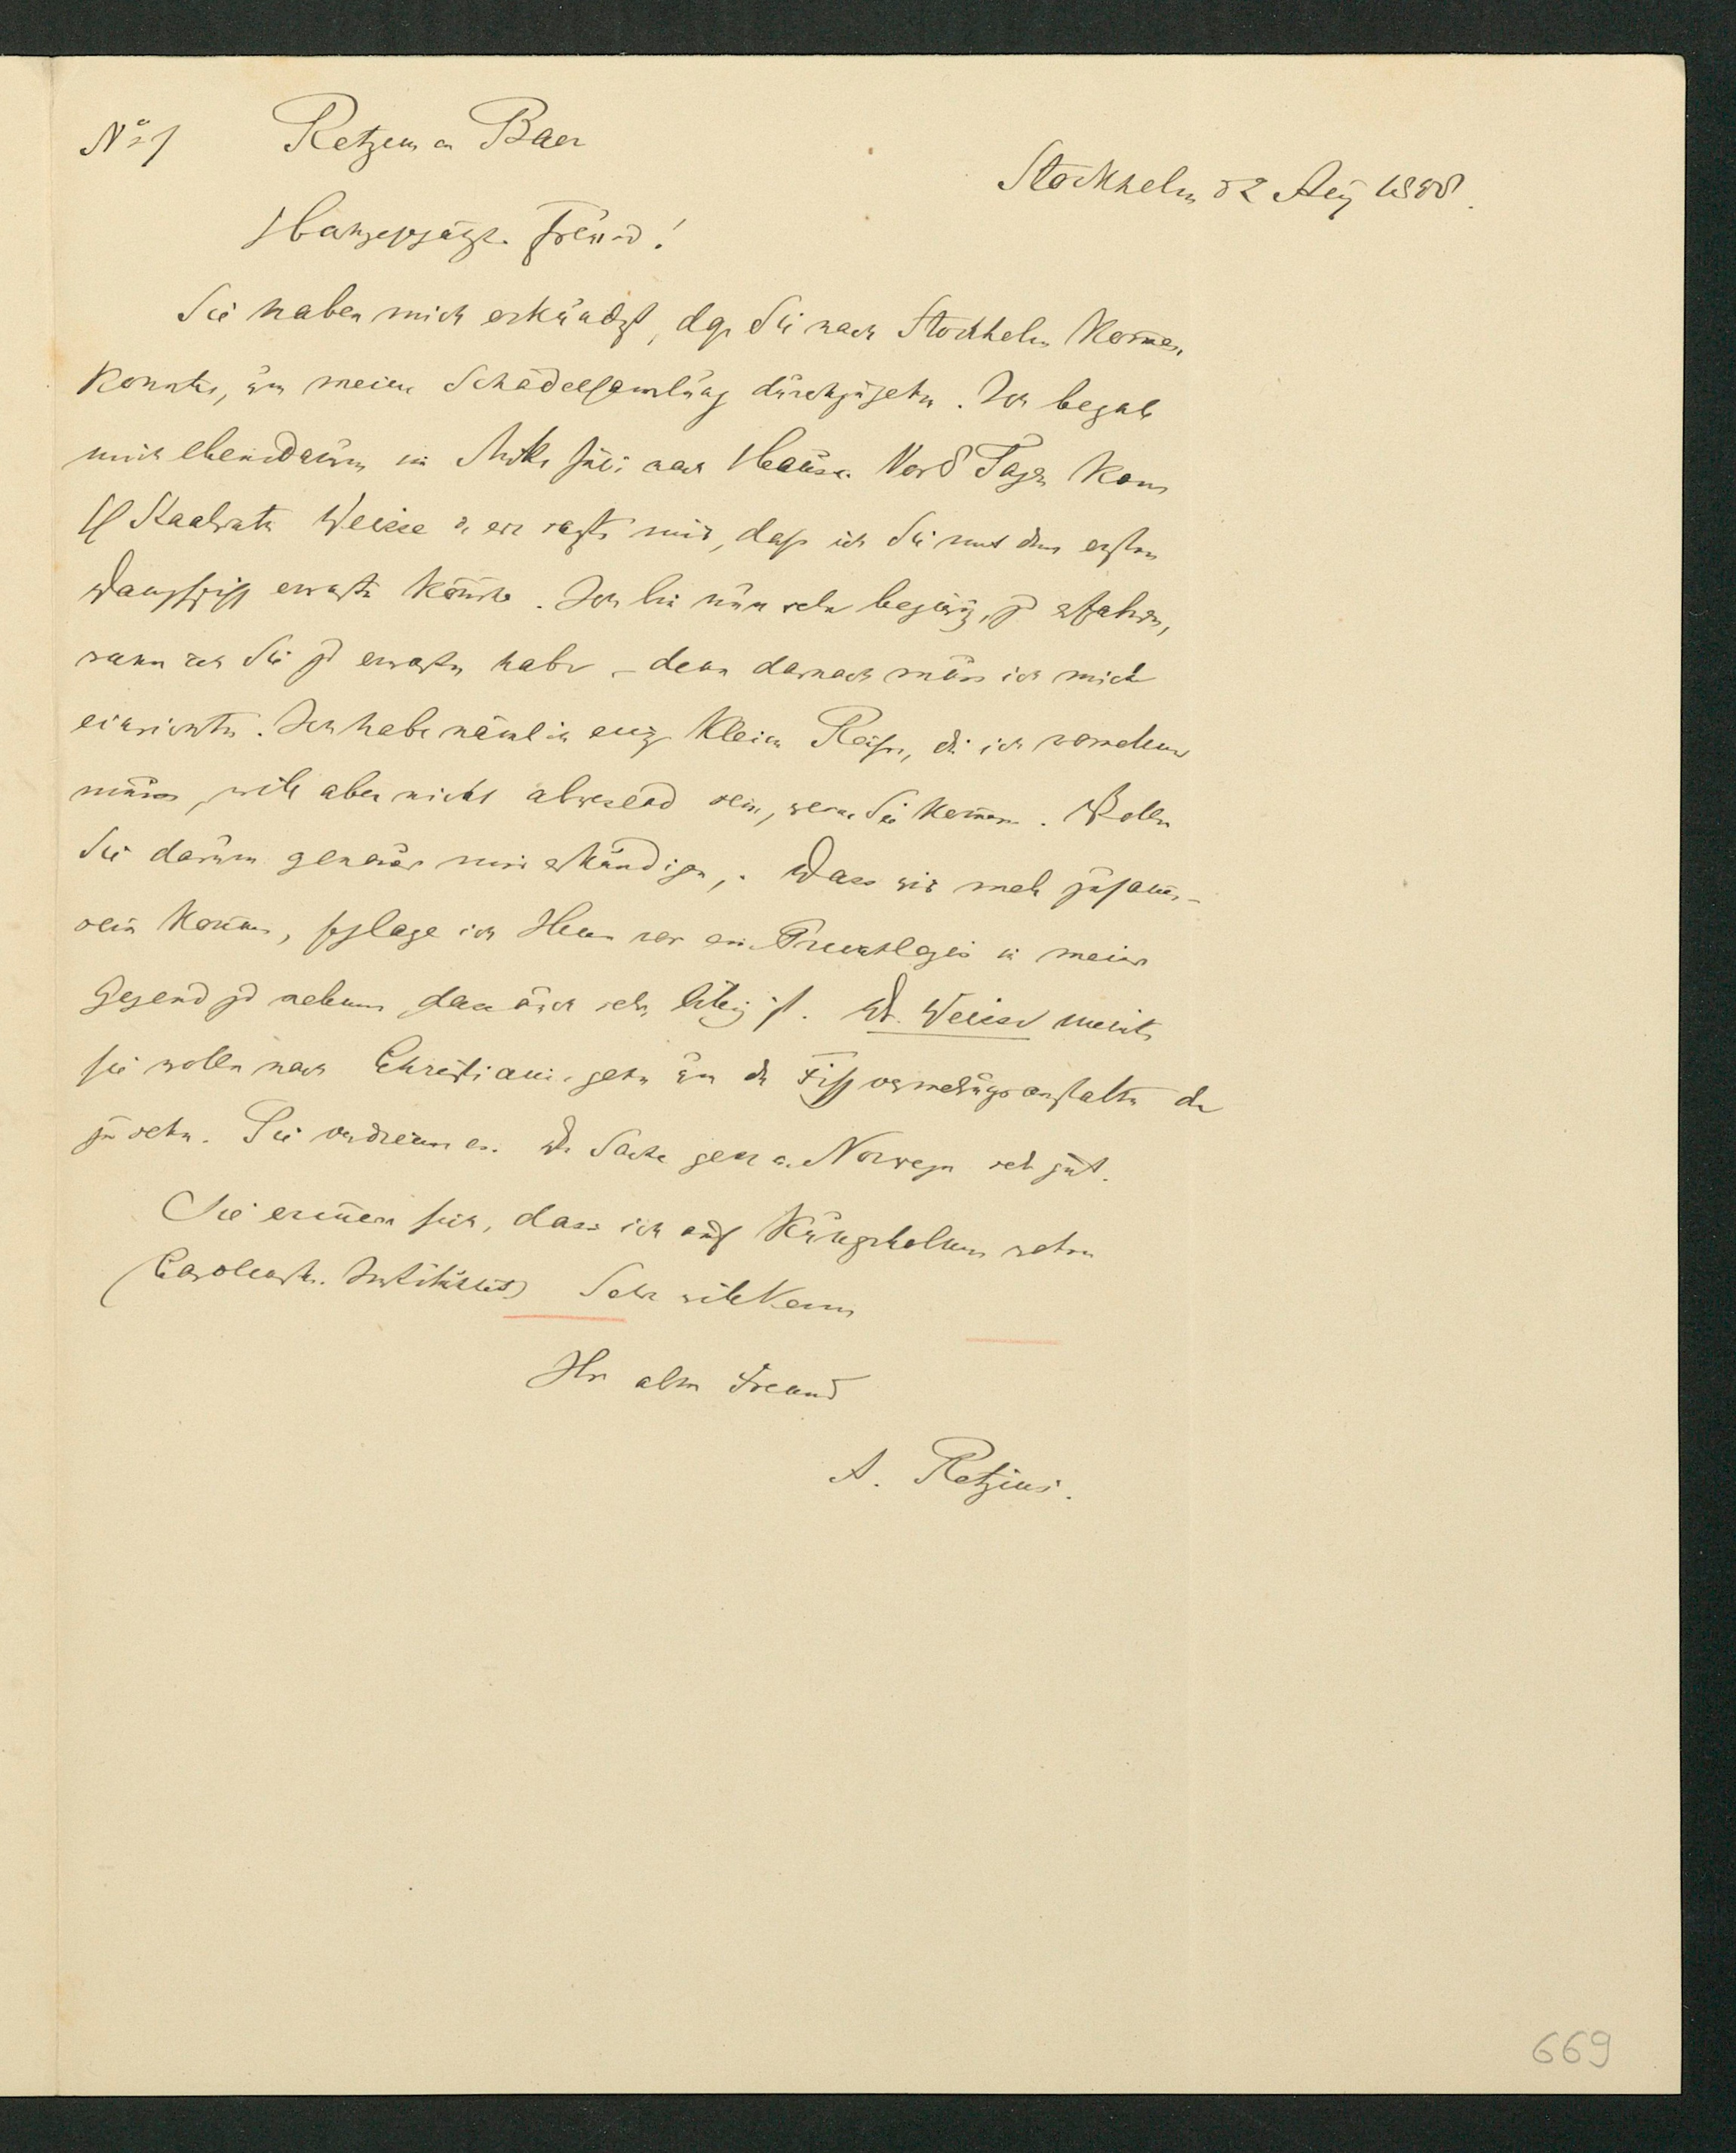 No 1 Retzius an Baer
Stockholm d 2 Aug 1858.
Freund!
Sie haben mich erkündigt, dass Sie nach Stockholm kom̄en
konnten, um meine Schädelsam̄lung durchzusehn. Ich begab
mich ebendarum in Juli nach Hause. Vor 8 Tagen kam
H Staatsrath Weisse u er sagte mir, dass ich Sie mit dem ersten
Dampfschiff erwarten könnte. Ich bin nun sehr begierig, zu erfahren,
wann ich Sie zu erwarten habe – denn darnach muss ich mich
einrichten. Ich habe nämlich einige kleine Reisen, die ich vornehmen
muss, will aber nicht abwesend sein, wenn Sie kom̄en. Wollen
Sie darum genauer mir erkündigen. Dass wir mehr zusam̄en-
sein können, schlage ich Ihnen vor ein Privatlogis in meiner
Gegend zu nehmen, das auch sehr billig ist. Dr. Weisse meinte
Sie wollen nach Christiania gehn um die Fischvermehrungsanstalten da
zu sehn. Sie verdienen es. Die Sache geht in Norwegen sehr gut.
Sie erin̄ern sich, dass ich auf Kungsholmen wohne
(Carolinsche Institutet) Sehr willkom̄en
Ihr alter Freund
A. Retzius.
669